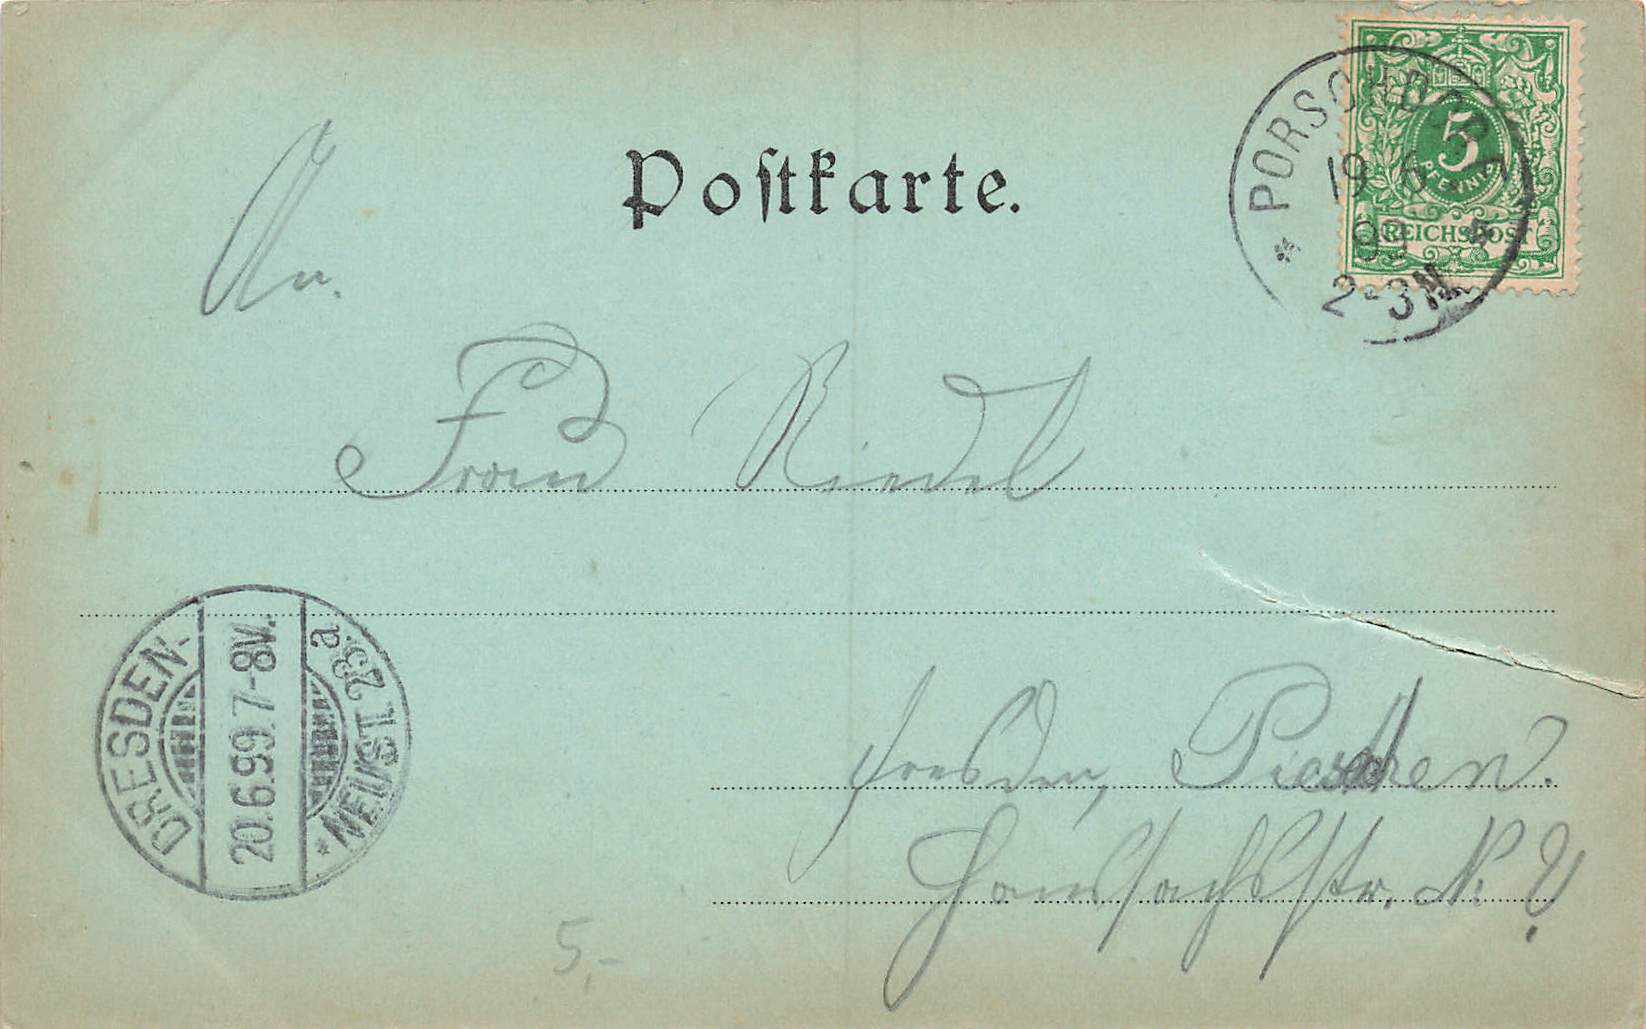 Postkarte.
PORSCHDORF
19 6
99
2-3N
5
PFENNIG
REICHSPOST
An.
Frau Riedel
DRESDEN-
NEUST. 23.
a
20.6.99.7-8V.
Dresden, Pieschen.
Hanssachsstr. N.
5,-